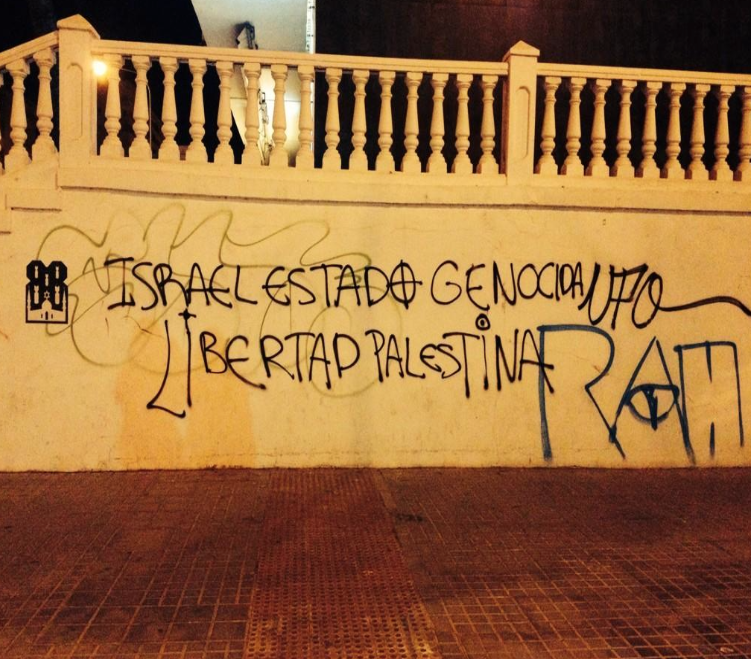 88
ISRAEL ESTADO GENOCIDA
LIBERTAD PALESTINA
RAM